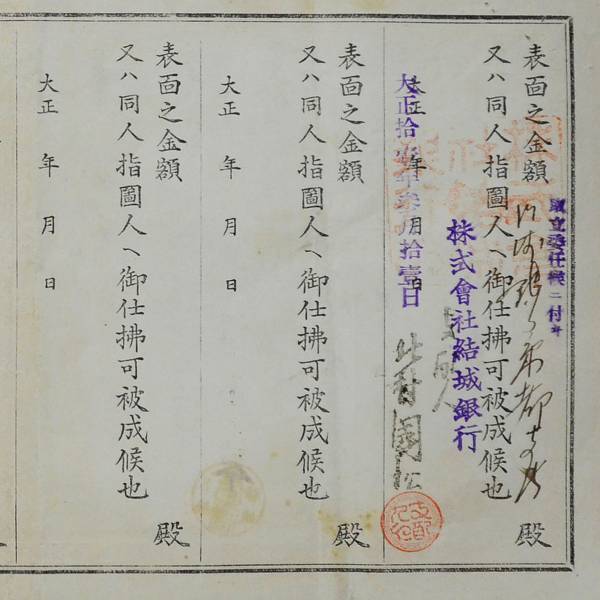 表面之金額
取立委任候ニ付
又ハ同人指圖人ヘ御仕拂可被成候也
殿
株式會社結城銀行
支配人
大正 年 月 日
大正拾壹年參月拾壹日
表面之金額
又ハ同人指圖人ヘ御仕拂可被成候也
殿
大正 年 月 日
表面之金額
又ハ同人指圖人ヘ御仕拂可被成候也
殿
大正 年 月 日